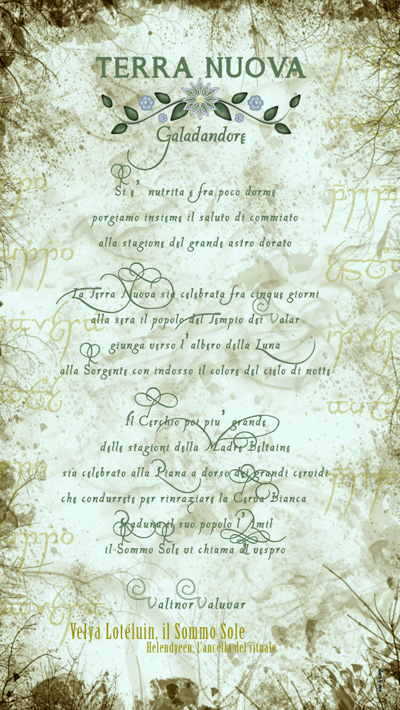 TERRA NUOVA
Galadandore
Si e' nutrita e fra poco dorme
porgiamo insieme il saluto di commiato
alla stagione del grande astro dorato
La Terra Nuova sia celebrata fra cinque giorni
alla sera il popolo del Tempio dei Valar
giunga verso l'albero della Luna
alla Sorgente con indosso il colore del cielo di notte
Il Cerchio poi piu' grande
delle stagioni della Madre Beltaine
sia celebrato alla Piana a dorso dei grandi cervidi
che condurrete per rinraziare la Cerva Bianca
Raduna il suo popolo l'Amil
il Sommo Sole vi chiama al vespro
Valinor Valuvar
Velya Lotéluin, il Sommo Sole
Helendreen, l'ancella del rituale